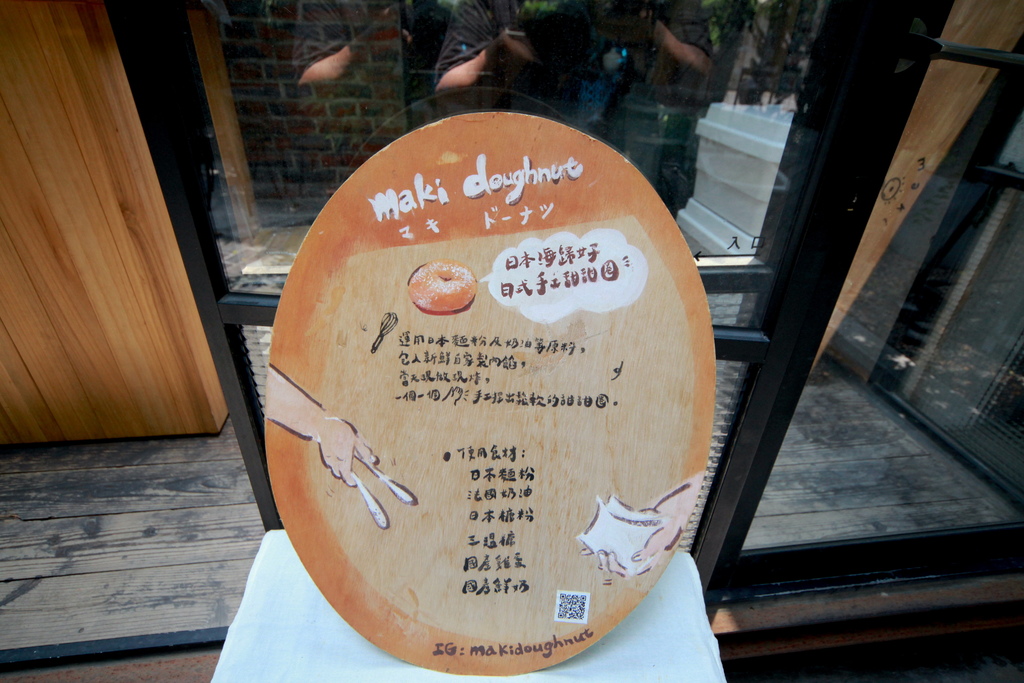 maki doughnut
マキ ドーナツ
日本海歸好
日式手工甜甜圈
運用日本麵粉及奶油等原料，
包入新鮮自家製內餡，
當天現做現炸，
一個一個 手工捏出鬆軟的甜甜圈。
使用食材：
日本麵粉
法國奶油
日本糖粉
三溫糖
國產雞蛋
國產鮮奶
IG: makidoughnut
入口